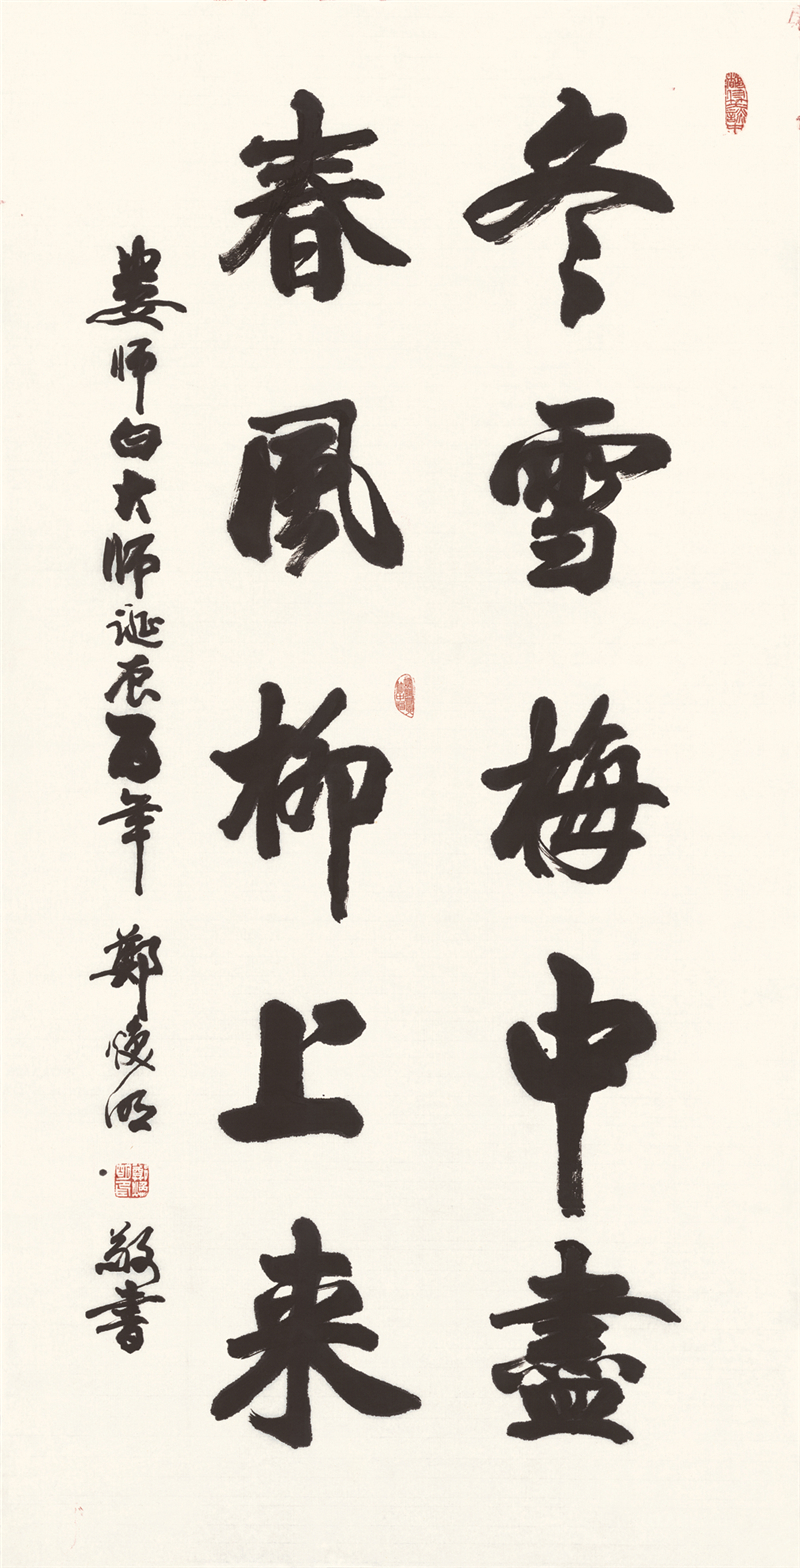 冬雪梅中盡
春風柳上来
娄師白大師誕辰百年 鄭懷明 敬書